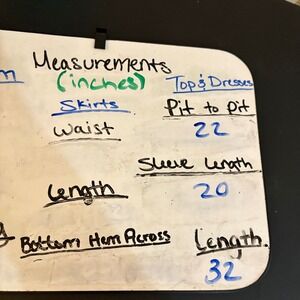 Measurements
(inches)
Skirts
Waist
Length
Bottom Hem Across
Tops & Dresses
Pit to Pit
22
Sleeve Length
20
Length
32